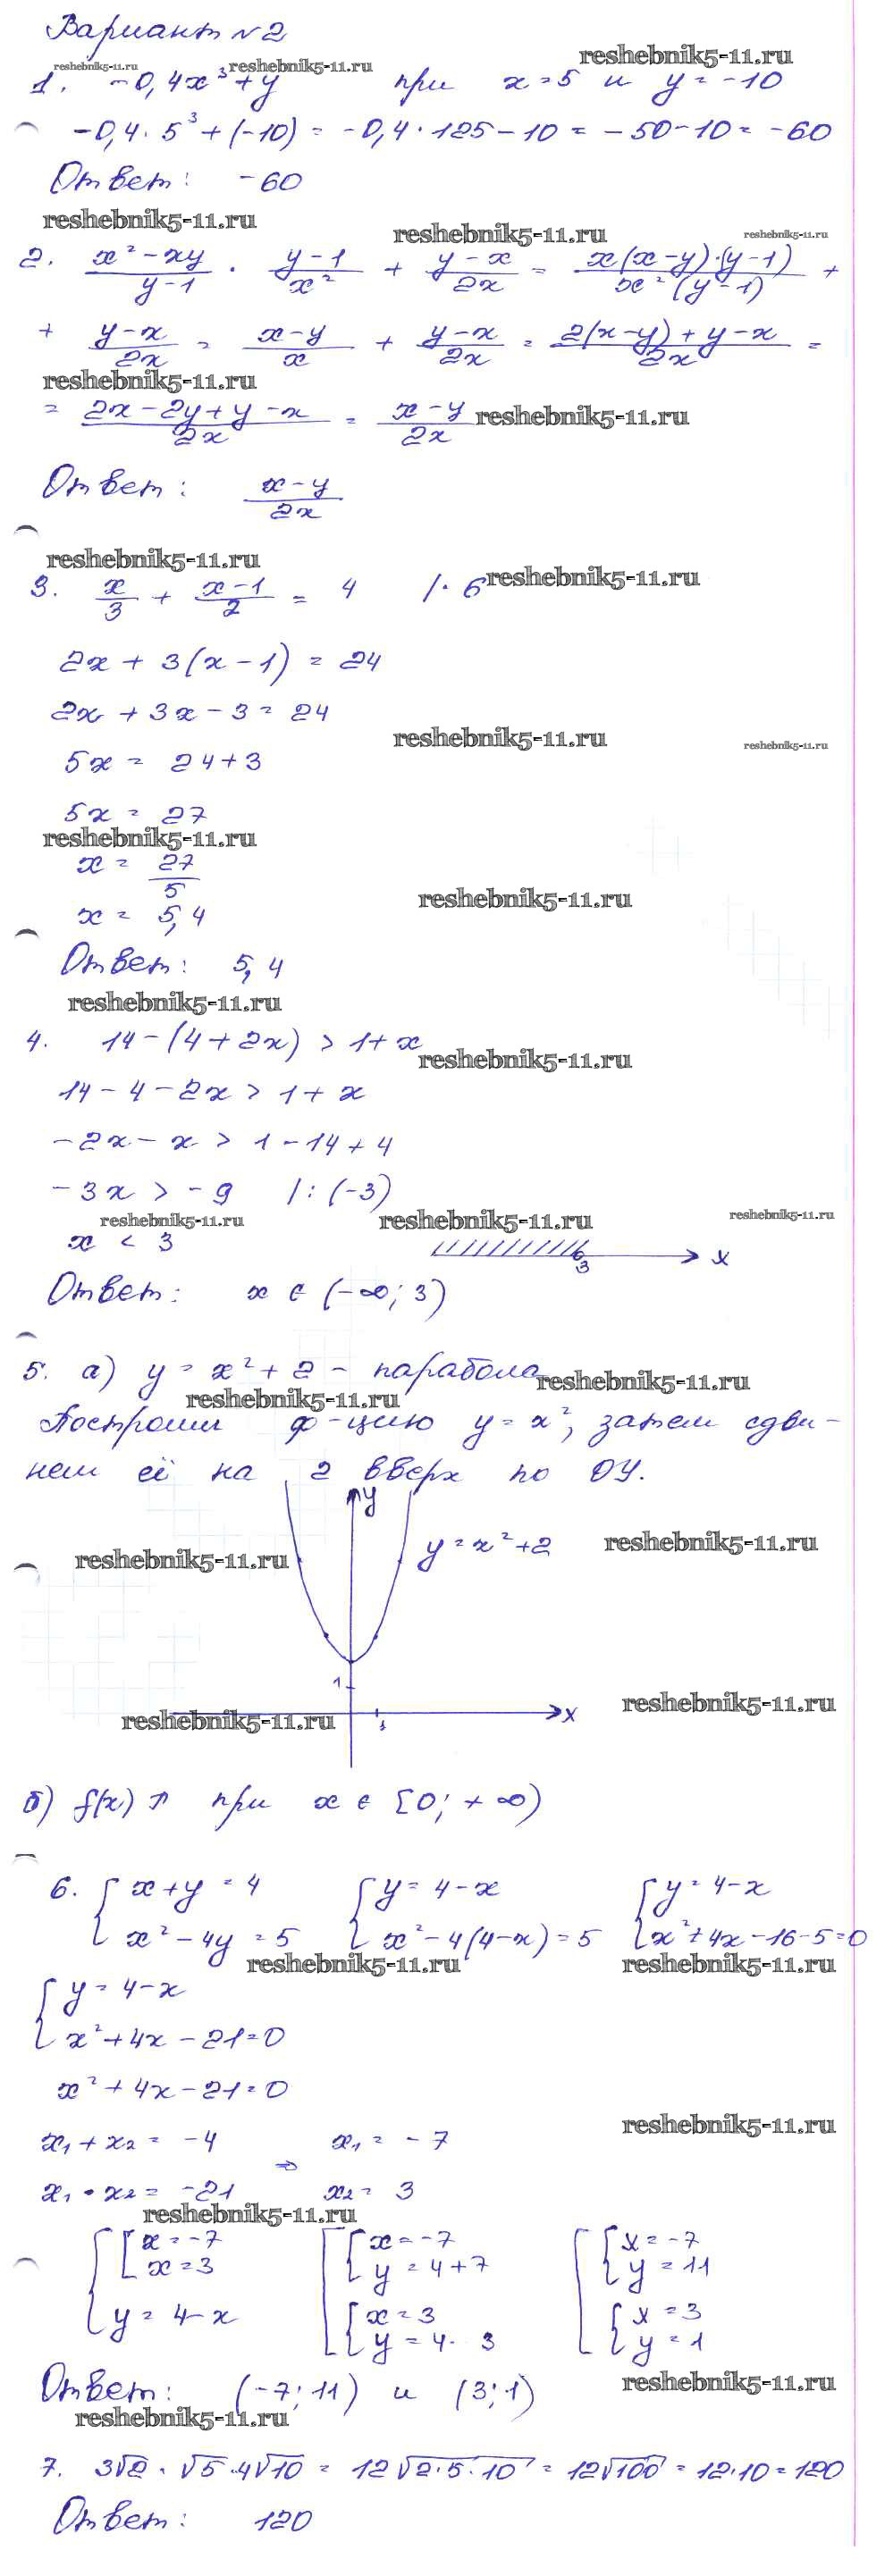 Вариант №2
reshebnik5-11.ru reshebnik5-11.ru reshebnik5-11.ru
1. -0,4x³+y при x=5 и y=-10
-0,4·5³+(-10)=-0,4·125-10=-50-10=-60
Ответ: -60
reshebnik5-11.ru reshebnik5-11.ru reshebnik5-11.ru
2. (x²-xy)/(y-1) · (y-1)/x² + (y-x)/2x = x(x-y)·(y-1)/x²(y-1) +
+ (y-x)/2x = (x-y)/x + (y-x)/2x = (2(x-y)+y-x)/2x =
reshebnik5-11.ru
= (2x-2y+y-x)/2x = (x-y)/2x reshebnik5-11.ru
Ответ: (x-y)/2x
reshebnik5-11.ru reshebnik5-11.ru
3. x/3 + (x-1)/2 = 4 /·6
2x+3(x-1)=24
2x+3x-3=24
reshebnik5-11.ru reshebnik5-11.ru
5x=24+3
5x=27
reshebnik5-11.ru
x=27/5
reshebnik5-11.ru
x=5,4
Ответ: 5,4
reshebnik5-11.ru
4. 14-(4+2x)>1+x
reshebnik5-11.ru
14-4-2x>1+x
-2x-x>1-14+4
-3x>-9 /:(-3)
reshebnik5-11.ru reshebnik5-11.ru reshebnik5-11.ru
x<3
3 x
Ответ: x∈(-∞;3)
5. а) y=x²+2 - парабола
reshebnik5-11.ru reshebnik5-11.ru
Построим ф-цию y=x², затем сдви-
нем её на 2 вверх по ОУ.
y
y=x²+2 reshebnik5-11.ru
reshebnik5-11.ru
1
reshebnik5-11.ru
reshebnik5-11.ru x
1
б) f(x)↗ при x∈[0;+∞)
6. { x+y=4 { y=4-x { y=4-x
x²-4y=5 x²-4(4-x)=5 x²+4x-16-5=0
reshebnik5-11.ru reshebnik5-11.ru
{ y=4-x
x²+4x-21=0
x²+4x-21=0
reshebnik5-11.ru
x₁+x₂=-4 x₁=-7
⇒
x₁·x₂=-21 x₂=3
reshebnik5-11.ru
{ [ x=-7 [ { x=-7 [ { x=-7
x=3 y=4+7 y=11
y=4-x { x=3 { x=3
y=4-3 y=1
reshebnik5-11.ru
Ответ: (-7;11) и (3;1)
reshebnik5-11.ru
7. 3√2·√5·4√10=12√2·5·10=12√100=12·10=120
Ответ: 120